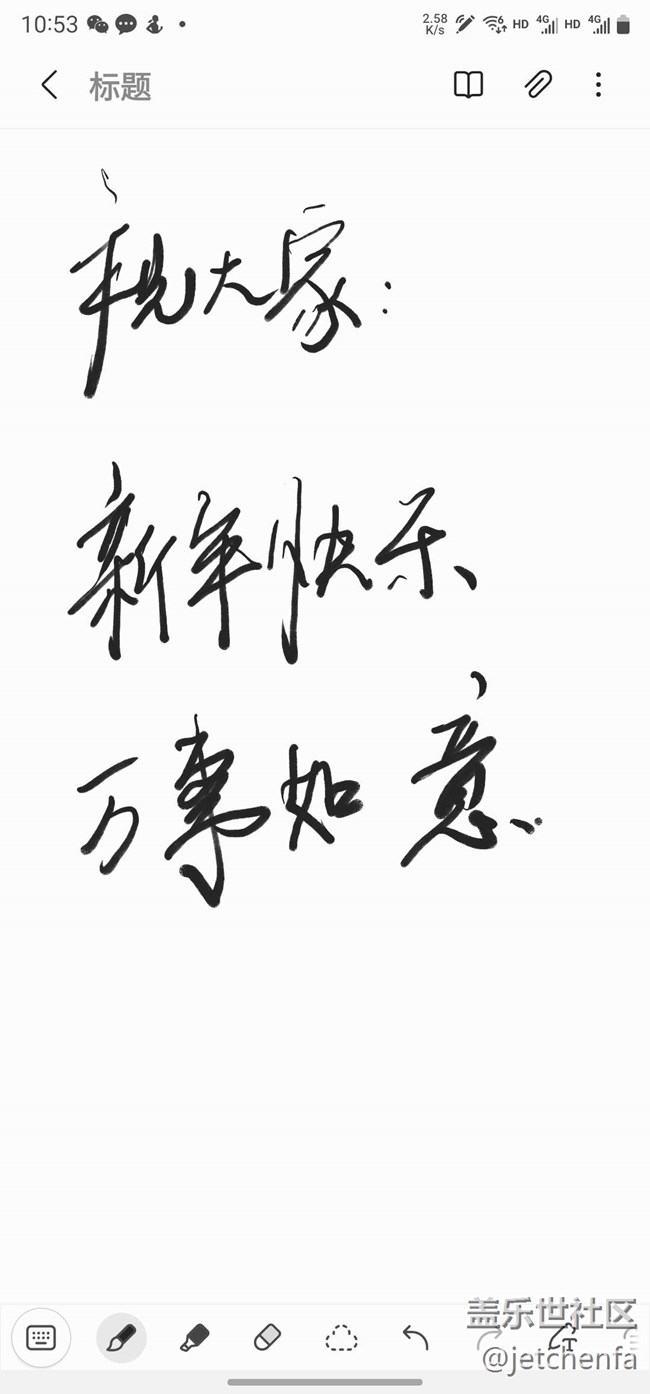 10:53
2.58 K/s 6 HD 4G HD 4G
标题
祝大家：
新年快乐
万事如意.
T
盖乐世社区
@jetchenfa